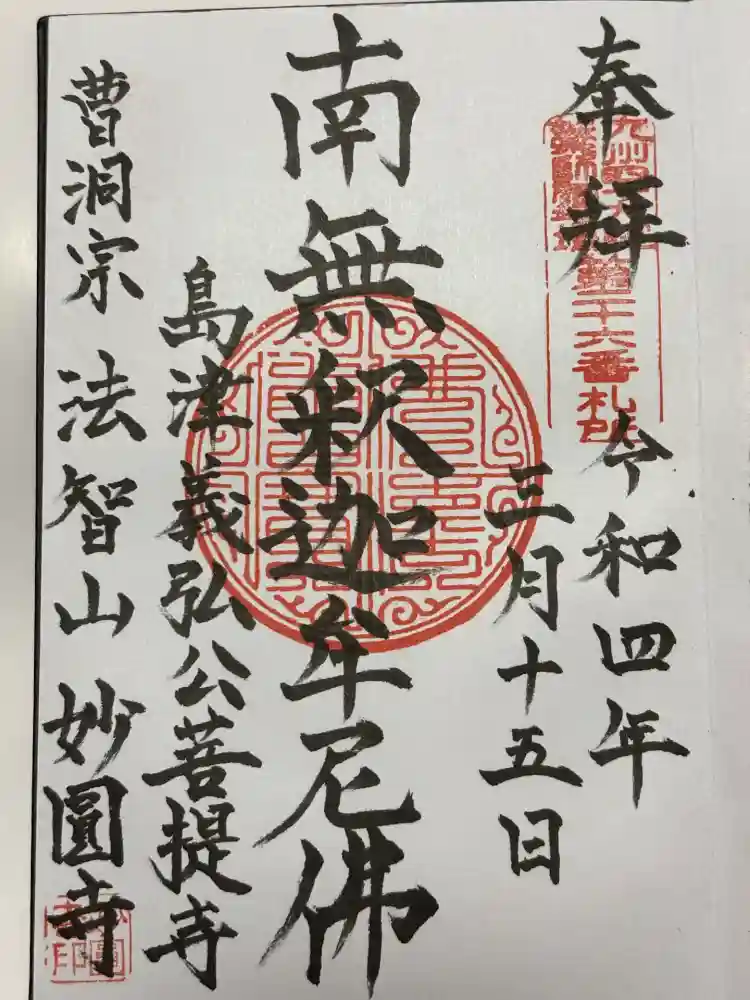 奉拝
第二十六番札所
令和四年
三月十五日
南無釈迦牟尼佛
島津義弘公菩提寺
曹洞宗 法智山 妙圓寺